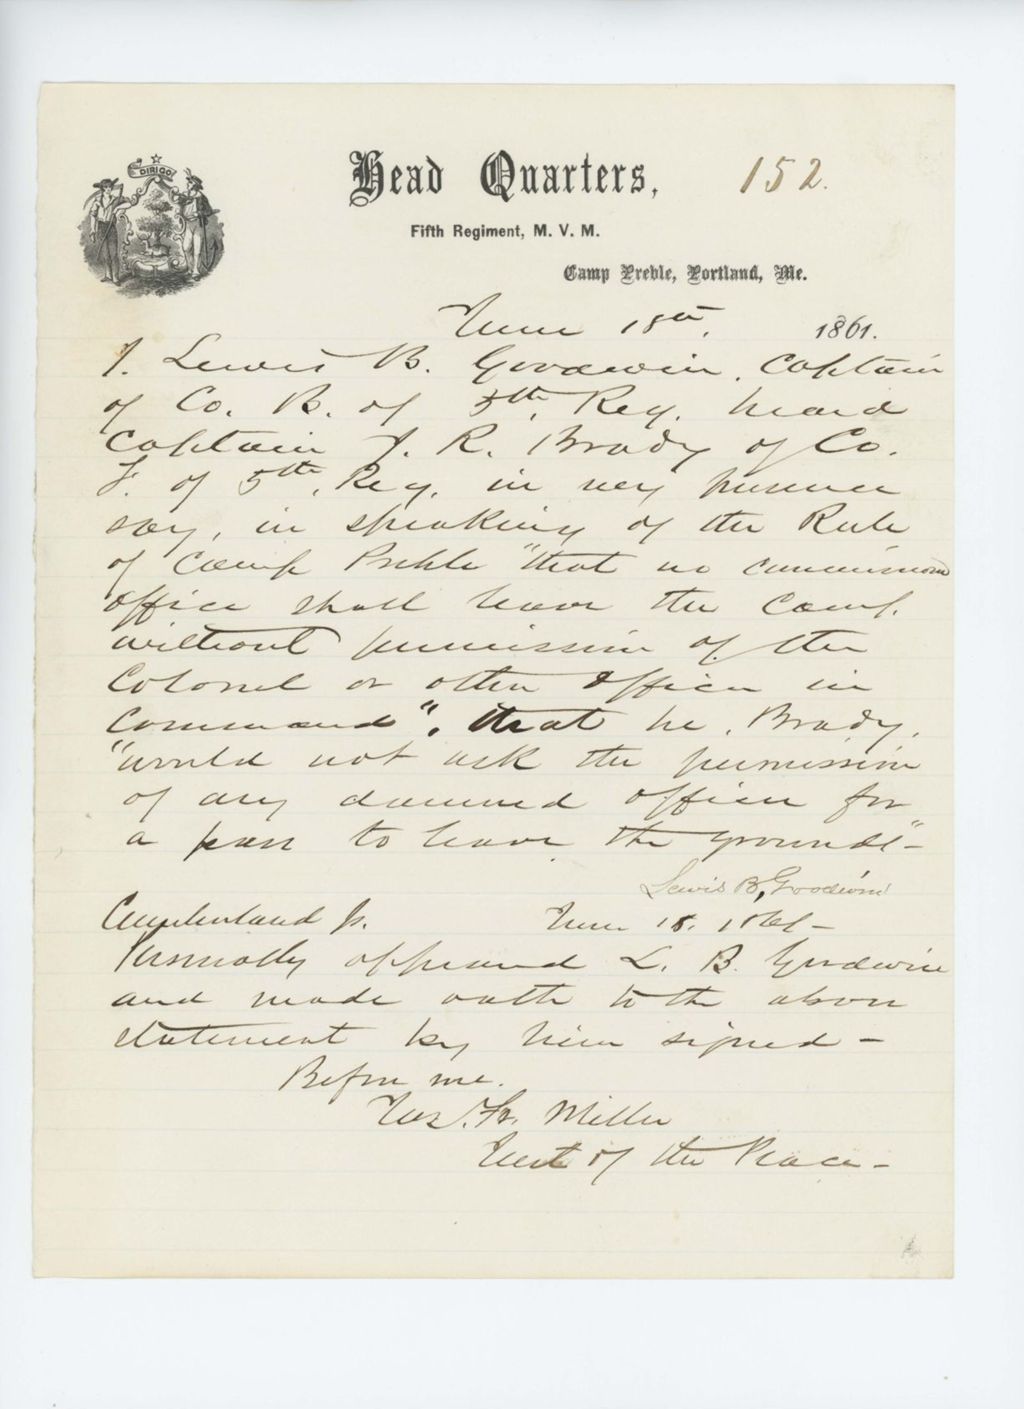 DIRIGO
Head Quarters,
152.
Fifth Regiment, M. V. M.
Camp Preble, Portland, Me.
June 18th, 1861.
I. Lewis B. Goodwin, Captain
of Co. B. of 5th, Reg. heard
Captain J. R. Brady of Co.
F. of 5th, Reg. in my presence
say, in speaking of the Rule
of Camp Preble "that no commissioned
officer shall leave the Camp.
without permission of the
Colonel or other Officer in
Command", that he, Brady,
"would not ask the permission
of any damned officer for
a pass to leave the grounds"—
Lewis B, Goodwin
Cumberland ss. June 18. 1861—
Personally appeared L. B. Goodwin
and made oath to the above
statement by him signed—
Before me.
Miller
Just of the Peace—